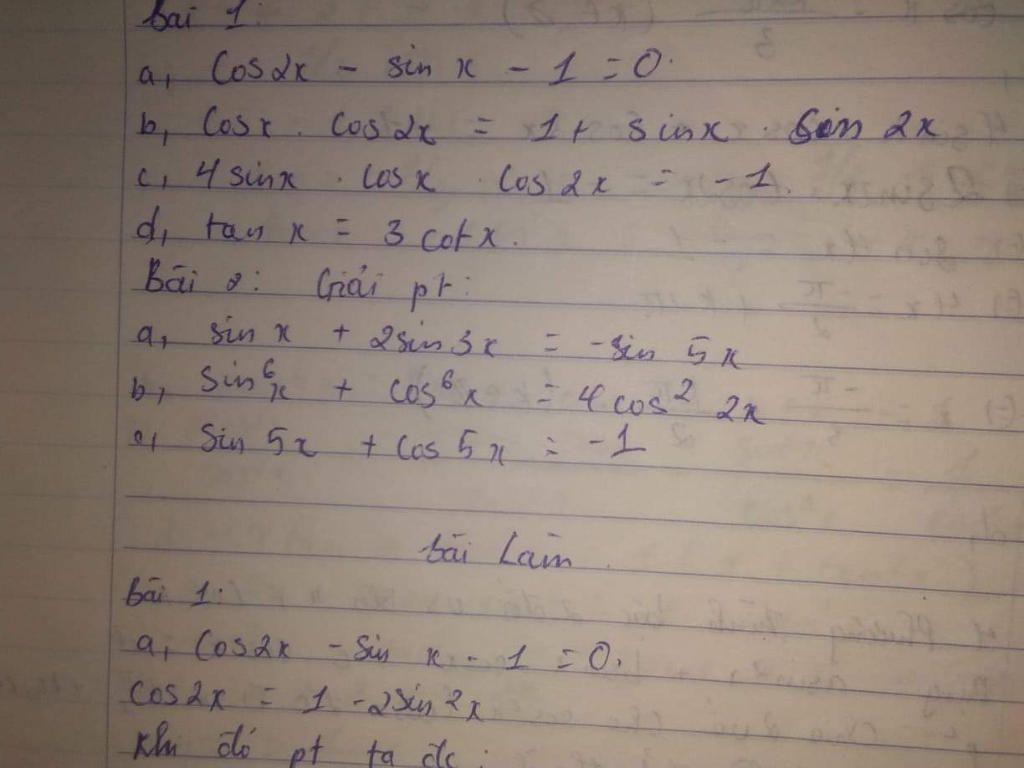 bài 1:
a, cos2x - sin x - 1 = 0.
b, cosx . cos2x = 1 + sinx . sin 2x
c, 4 sinx . cosx . cos 2x = -1.
d, tan x = 3 cotx.
Bài 2: Giải pt:
a, sin x + 2sin 3x = -sin 5x
b, sin⁶x + cos⁶x = 4cos² 2x
c, sin 5x + cos 5x = -1
bài Làm
bài 1:
a, cos2x - sin x - 1 = 0.
cos2x = 1 - 2sin²x
khi đó pt ta đc: